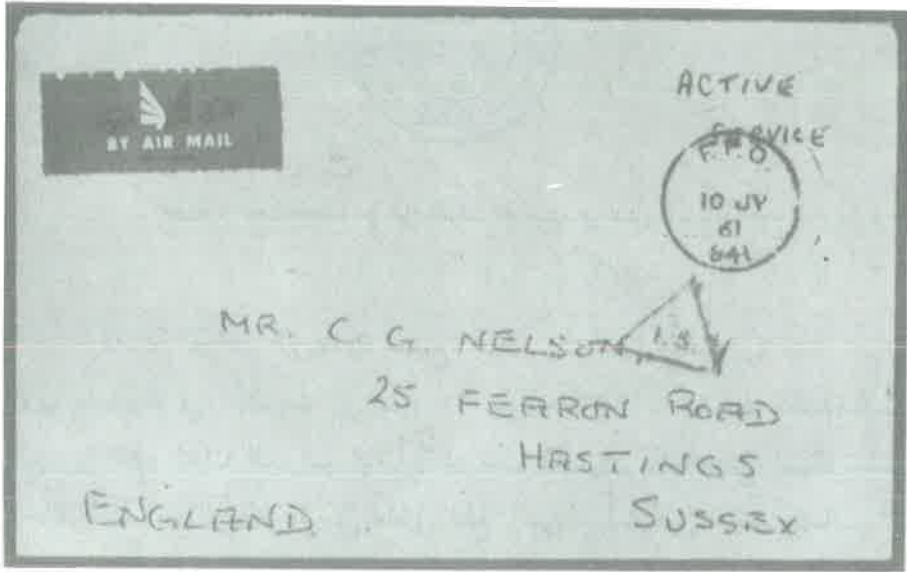 BY AIR MAIL
ACTIVE
SERVICE
F.P.O
10 JY
61
641
MR. C. G. NELSON,
25 FEARON ROAD
HASTINGS
SUSSEX
ENGLAND.